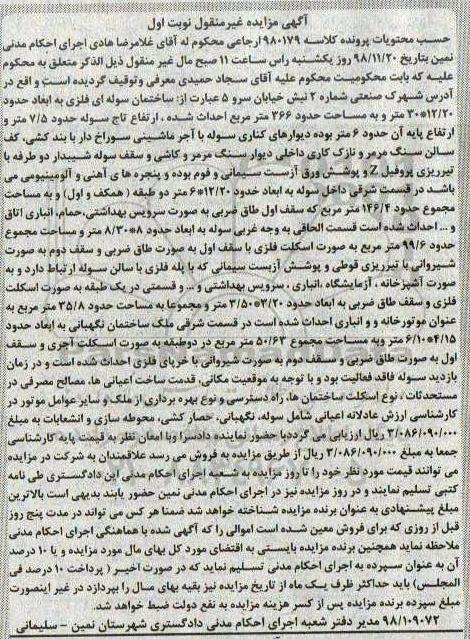 آگهی مزایده غیرمنقول نوبت اول
حسب محتویات پرونده کلاسه ۹۸۰۱۷۹ ارجاعی محکوم له آقای غلامرضا هادی اجرای احکام مدنی
نمین بتاریخ ۹۸/۱۱/۲۰ روز یکشنبه راس ساعت ۱۱ صبح مال غیر منقول ذیل الذکر متعلق به محکوم
علیه که بابت محکومیت محکوم علیه آقای سجاد حمیدی معرفی وتوقیف گردیده است و اقع در
آدرس شهرک صنعتی شماره ۲ نبش خیابان سرو ۵ عبارت از: ساختمان سوله ای فلزی به ابعاد حدود
۱۲/۲۰*۳۰ متر و به مساحت حدود ۳۶۶ متر مربع احداث شده ، ارتفاع تاج سوله حدود ۷/۵ متر و
ارتفاع پایه آن حدود ۶ متر بوده دیوارهای کناری سوله با آجر ماشینی سوراخ دار با بند کشی، کف
سالن سنگ مرمر و نازک کاری داخلی دیوار سنگ مرمر و کاشی و سقف سوله شیبدار دو طرفه با
تیرریزی پروفیل Z و پوشش ورق آزبست سیمانی و فوم بوده و پنجره ها ی آهنی و آلومینیومی می
باشد در قسمت شرقی داخل سوله به ابعاد حدود ۱۲/۲۰*۶ متر دو طبقه ( همکف و اول) و به مساحت
مجموع حدود ۱۴۶/۴ متر مربع که سقف اول طاق ضربی به صورت سرویس بهداشتی،حمام، انباری اتاق
و ... احداث شده است قسمت الحاقی به وجه غربی سوله به ابعاد حدود ۸*۸/۳۰ متر و مساحت مجموع
حدود ۹۹/۶ متر مربع به صورت اسکلت فلزی با سقف اول به صورت طاق ضربی و سقف دوم به صورت
شیروانی با تیرریزی قوطی و پوشش آزبست سیمانی که با پله فلزی با سالن سوله ارتباط دارد و به
صورت آشپزخانه ، آزمایشگاه ،انباری ، سرویس بهداشتی و ... و قسمتی در یک طبقه به صورت اسکلت
فلزی و سقف طاق ضربی به ابعاد حدود ۳/۲۰*۳/۵۰ متر و مجموعا به مساحت حدود ۳۵/۸ متر مربع به
عنوان موتورخانه و و انباری احداث شده است در قسمت شرقی ملک ساختمان نگهبانی به ابعاد حدود
۴/۱۵*۶/۱۰ متر وبه مساحت مجموع ۵۰/۶۳ متر مربع در دوطبقه به صورت اسکلت آجری و سقف
اول به صورت طاق ضربی و سقف دوم به صورت شیروانی با خرپای فلزی احداث شده است و در زمان
بازدید سوله فاقد فعالیت بود و با توجه به موقعیت مکانی، قدمت ساخت اعیانی ها، مصالح مصرفی در
مستحدثات ، نوع اسکلت ساختمان ها، راه دسترسی و نوع بهره برداری از ملک و سایر عوامل موثور در
کارشناسی ارزش عادلانه اعیانی شامل سوله، نگهبانی، حصار کشی، محوطه سازی و انشعابات به مبلغ
۳/۰۸۶/۰۹۰/۰۰۰ ریال ارزیابی می گرددبا حضور نماینده دادسرا وبا امعان نظر به قیمت پایه کارشناسی
جمعا به مبلغ ۳/۰۸۶/۰۹۰/۰۰۰ ریال از طریق مزایده به فروش می رسد علاقمندان به شرکت در مزایده
می توانند قیمت مورد نظر خود را تا روز مزایده به شعبه اجرای احکام مدنی این دادگستری طی نامه
کتبی تسلیم نمایند و در روز مزایده نیز در اجرای احکام مدنی نمین حضور یابند بدیهی است بالاترین
مبلغ پیشنهادی به عنوان برنده مزایده شناخته خواهد شد ضمنا هر کس می تواند در مدت پنج روز
قبل از روزی که برای فروش معین شده است اموالی را که آگهی شده با هماهنگی اجرای احکام مدنی
ملاحظه نماید همچنین برنده مزایده بایستی به اقتضای مورد کل بهای مال مورد مزایده و یا ۱۰ درصد
آن به عنوان سپرده به اجرای احکام مدنی تسلیم نماید که در صورت اخیر ( پرداخت ۱۰ درصد فی
المجلس) باید حداکثر ظرف یک ماه از تاریخ مزایده نیز بقیه بهای مال را بپردازد در غیر اینصورت
مبلغ سپرده برنده مزایده پس از کسر هزینه مزایده به نفع دولت ضبط خواهد شد.
۹۸/۱۰۹۰۷۲ مدیر دفتر شعبه اجرای احکام مدنی دادگستری شهرستان نمین - سلیمانی